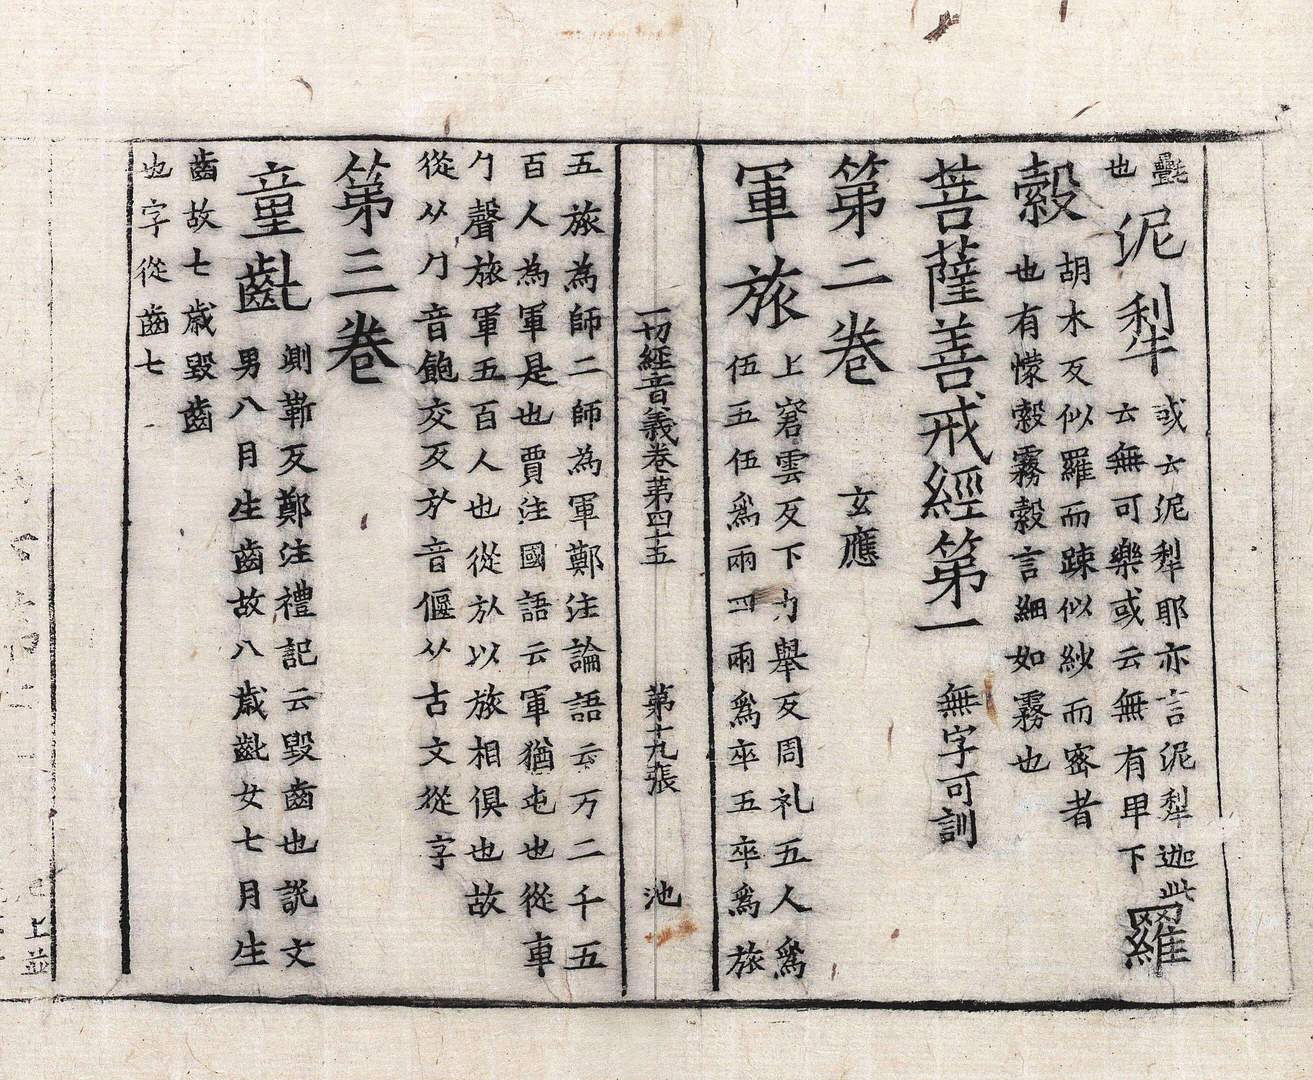 氎
也
泥犂
或云泥犁耶亦言泥犁迦此
云無可樂或云無有甲下
羅
縠
胡木反似羅而踈似紗而密者
也有幪縠霧縠言細如霧也
菩薩善戒經第一 無字可訓
第二卷 玄應
軍旅
上窘雲反下力舉反周礼五人爲
伍五伍爲兩四兩爲卒五卒爲旅
一切經音義卷第四十五 第十九張 池
五旅為師二師為軍鄭注論語云万二千五
百人為軍是也賈注國語云軍猶屯也從車
勹聲旅軍五百人也從㫃以旅相俱也故
從从勹音飽交反㫃音偃从古文從字
第三卷
童齔
測靳反鄭注禮記云毀齒也說文
男八月生齒故八歲齔女七月生
齒故七歲毀齒
也字從齒七
上並